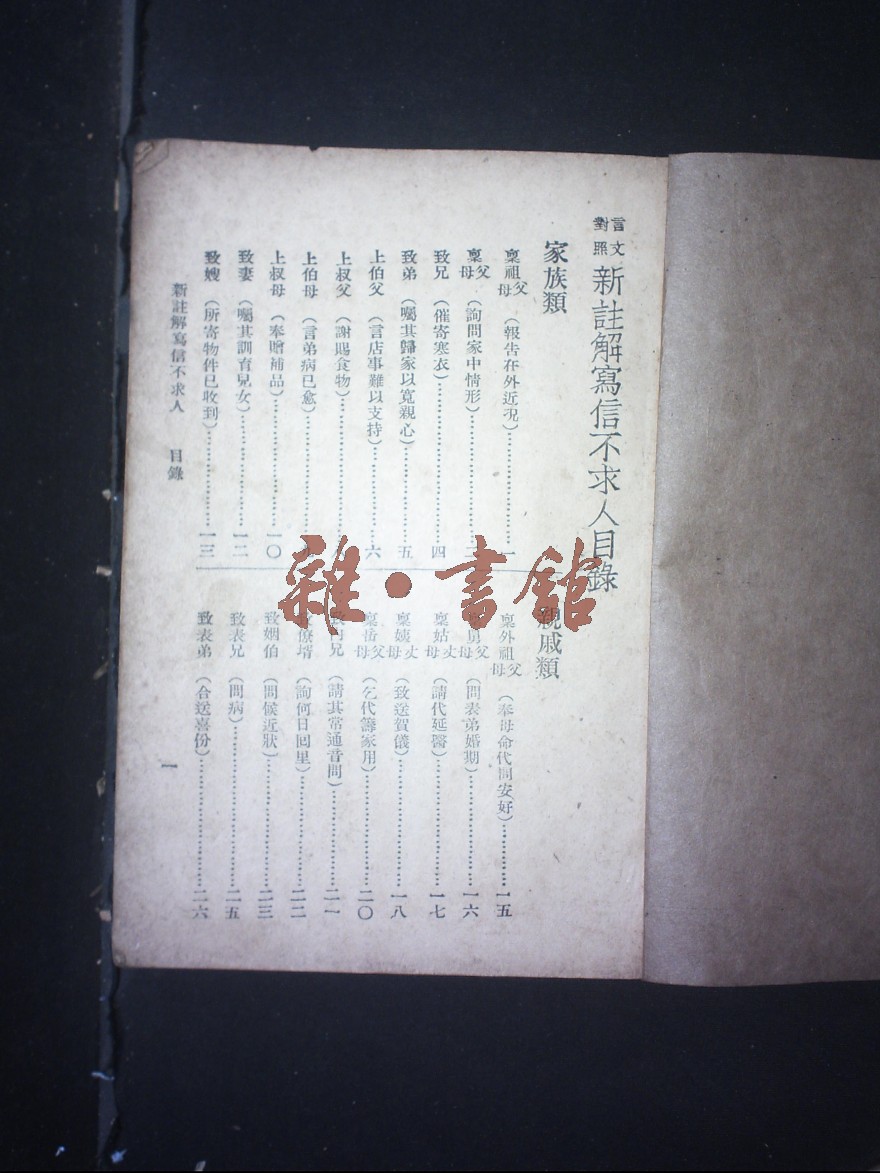 言文對照
新註解寫信不求人目錄
家族類
稟祖父母(報告在外近況)…………一
稟父母(詢問家中情形)…………
致兄(催寄寒衣)…………四
致弟(囑其歸家以寬親心)…………五
上伯父(言店事難以支持)…………六
上叔父(謝賜食物)…………
上伯母(言弟病已愈)…………
上叔母(奉贈補品)…………一〇
致妻(囑其訓育兒女)…………一二
致嫂(所寄物件已收到)…………一三
親戚類
稟外祖父母(奉母命代問安好)…………一五
舅父母(問表弟婚期)…………一六
稟姑丈母(請代延醫)…………一七
稟姨丈母(致送賀儀)…………一八
稟岳父母(乞代籌家用)…………二〇
致內兄(請其常通音問)…………二一
僚壻(詢何日回里)…………二二
致姻伯(問候近狀)…………二三
致表兄(問病)…………二五
致表弟(合送喜份)…………二六
新註解寫信不求人 目錄
一
雜·書館